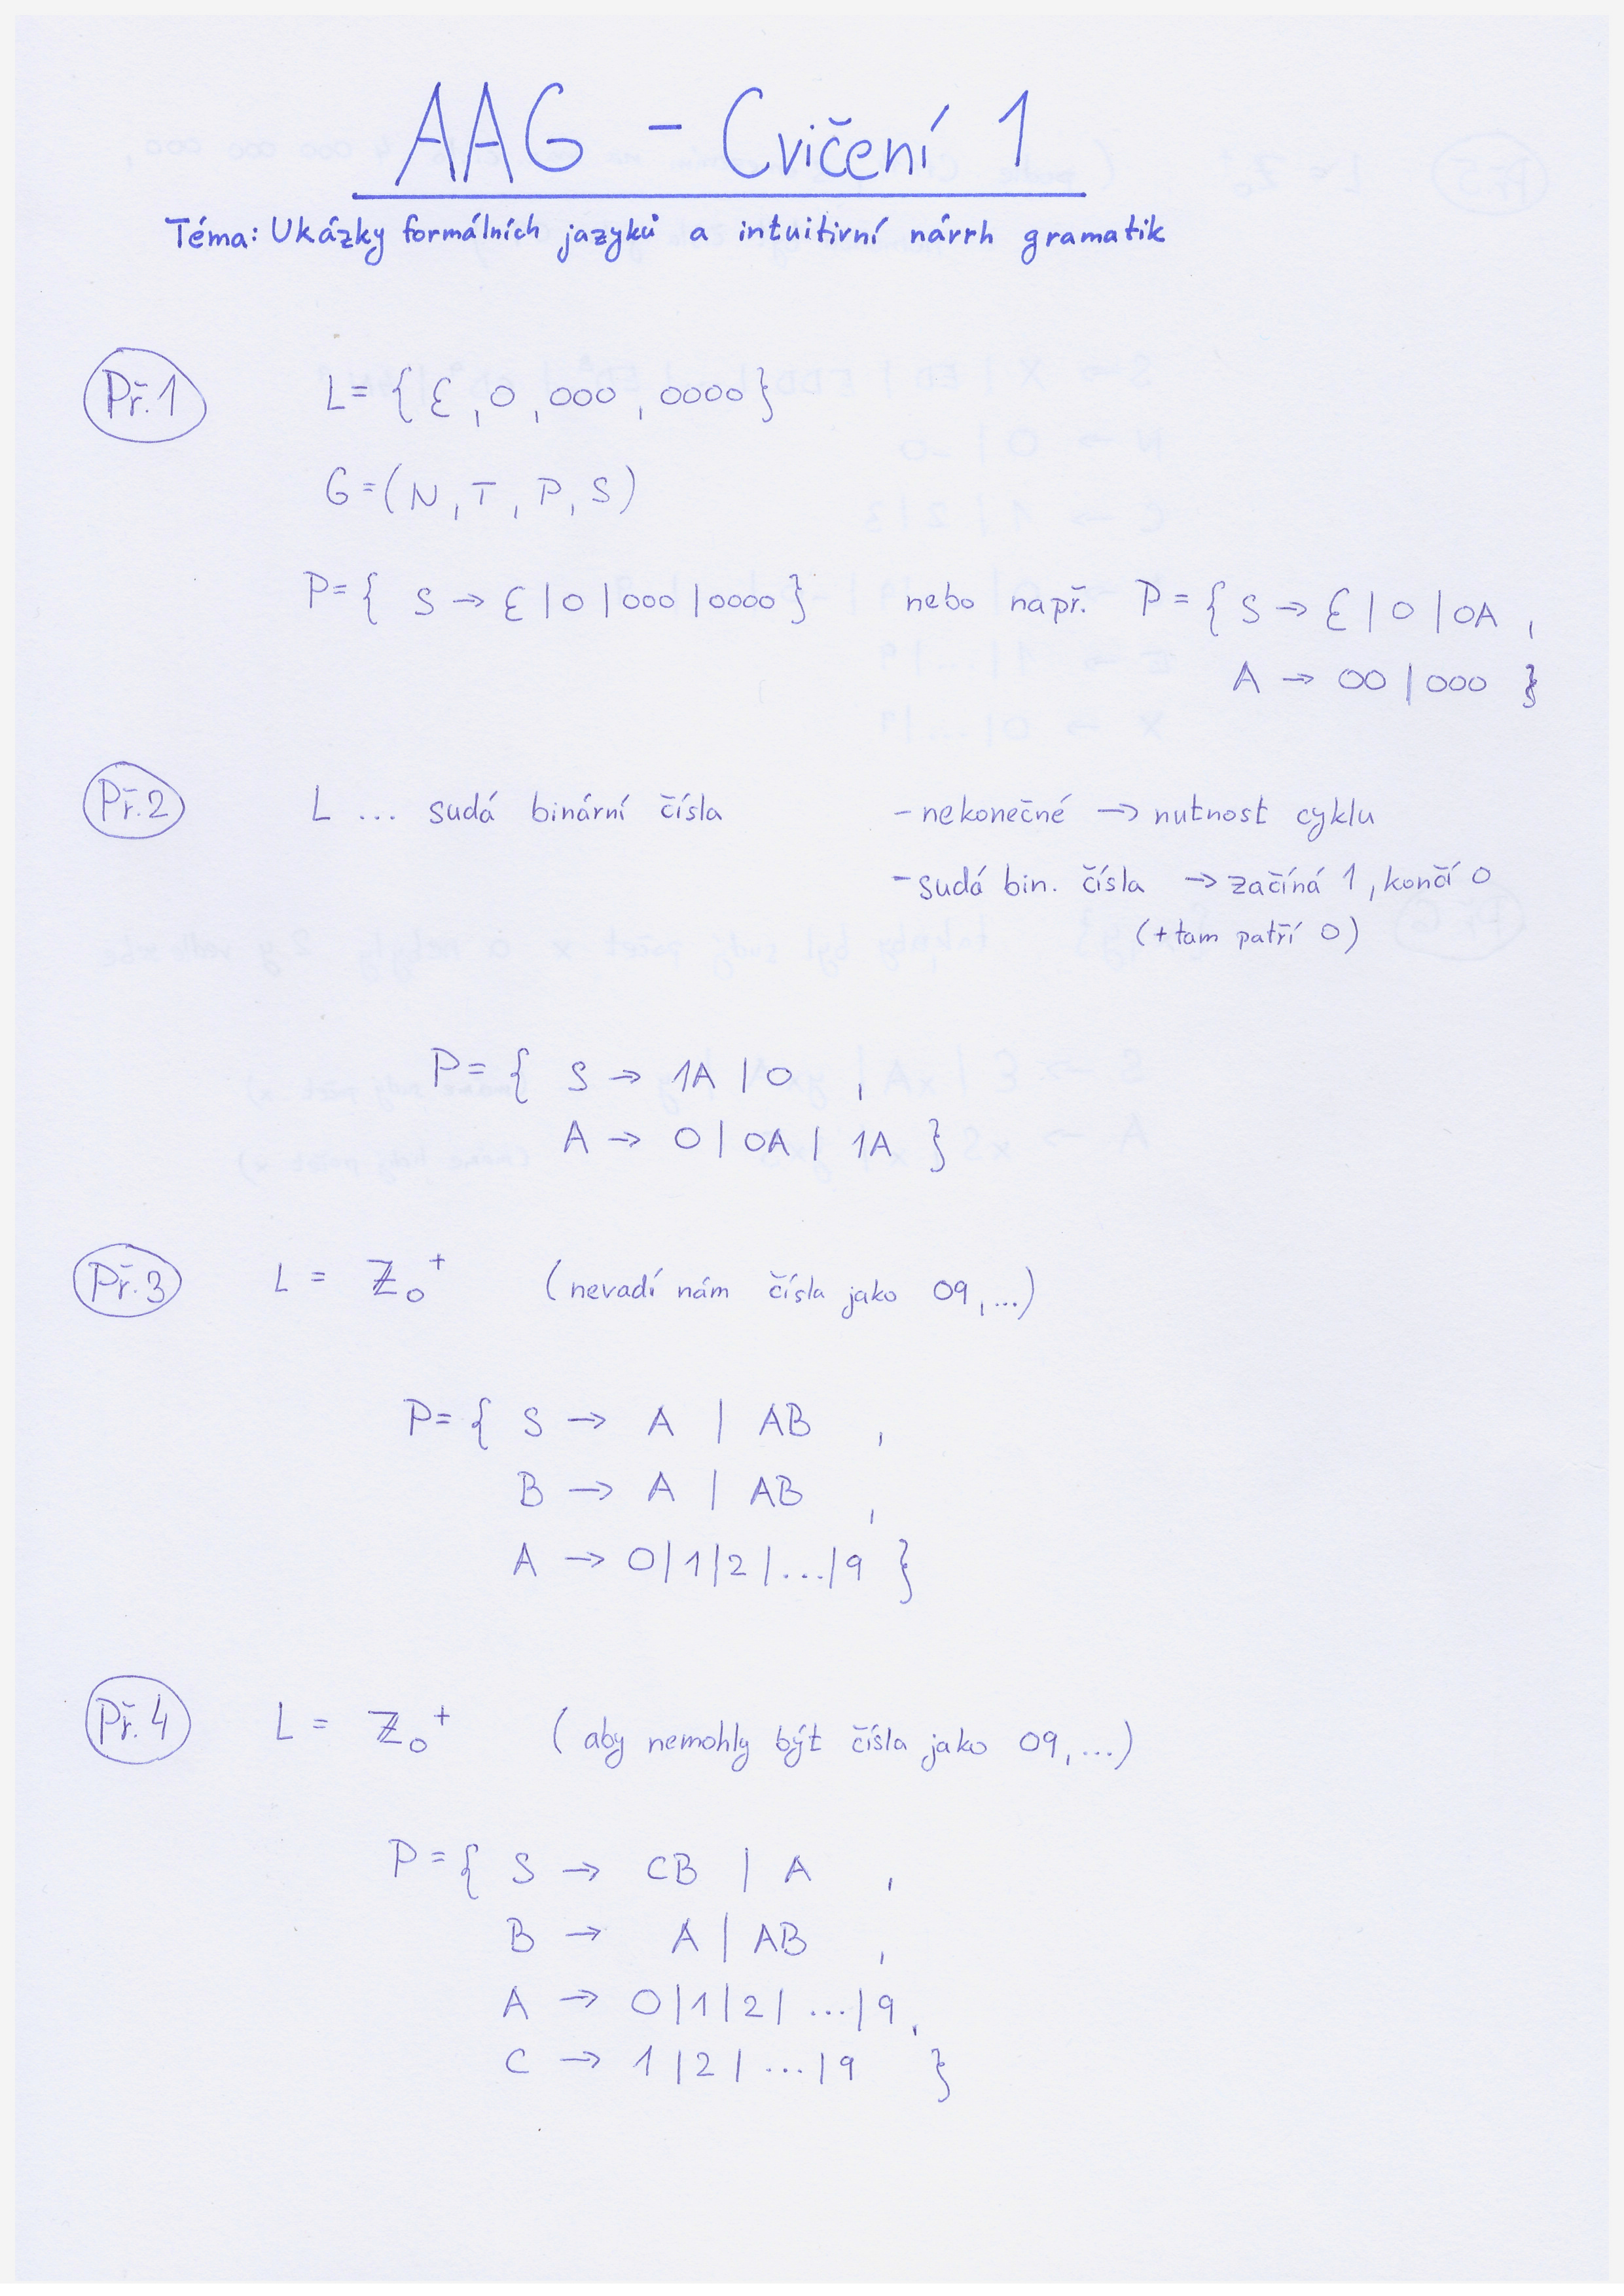 AAG - Cvičení 1
Téma: Ukázky formálních jazyků a intuitivní návrh gramatik
Př.1 L = { ε , 0 , 000 , 0000 }
G = ( N , T , P , S )
P = { S → ε | 0 | 000 | 0000 } nebo např. P = { S → ε | 0 | 0A ,
A → 00 | 000 }
Př.2 L ... sudá binární čísla - nekonečné → nutnost cyklu
- sudá bin. čísla → začíná 1, končí 0
(+ tam patří 0)
P = { S → 1A | 0 ,
A → 0 | 0A | 1A }
Př.3 L = ℤ₀⁺ (nevadí nám čísla jako 09, ...)
P = { S → A | AB ,
B → A | AB ,
A → 0 | 1 | 2 | ... | 9 }
Př.4 L = ℤ₀⁺ (aby nemohly být čísla jako 09, ...)
P = { S → CB | A ,
B → A | AB ,
A → 0 | 1 | 2 | ... | 9 ,
C → 1 | 2 | ... | 9 }